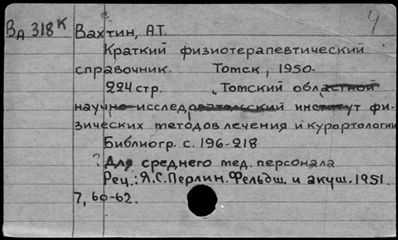 Вд 318 К Вахтин, А.Т. 4
Краткий физиотерапевтический
справочник. Томск, 1950.
224 стр. Томский областной
научно-исследовательский институт фи-
зических методов лечения и курортологии
Библиогр. с. 196-218
? Для среднего мед. персонала
Рец.: Я.С. Перлин. Фельдш. и акуш. 1951.
7, 60-62.